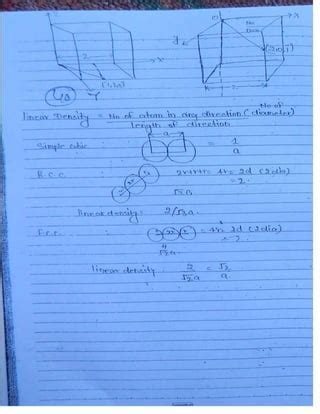 Z
O
X
No
y
X
(1,0,1)
Y
K
2
40
linear Density = No of atom in any direction (No of diameter)
length of direction
a
Simple cubic = 1/a
B.C.C : r+2r+r = 4r = 2d (2dia)
= 2
√3a
linear density = 2/√3a
F.C.C : r 2r r = 4r = 2d (2dia)
= 2
√2a
linear density 2/√2a = √2/a